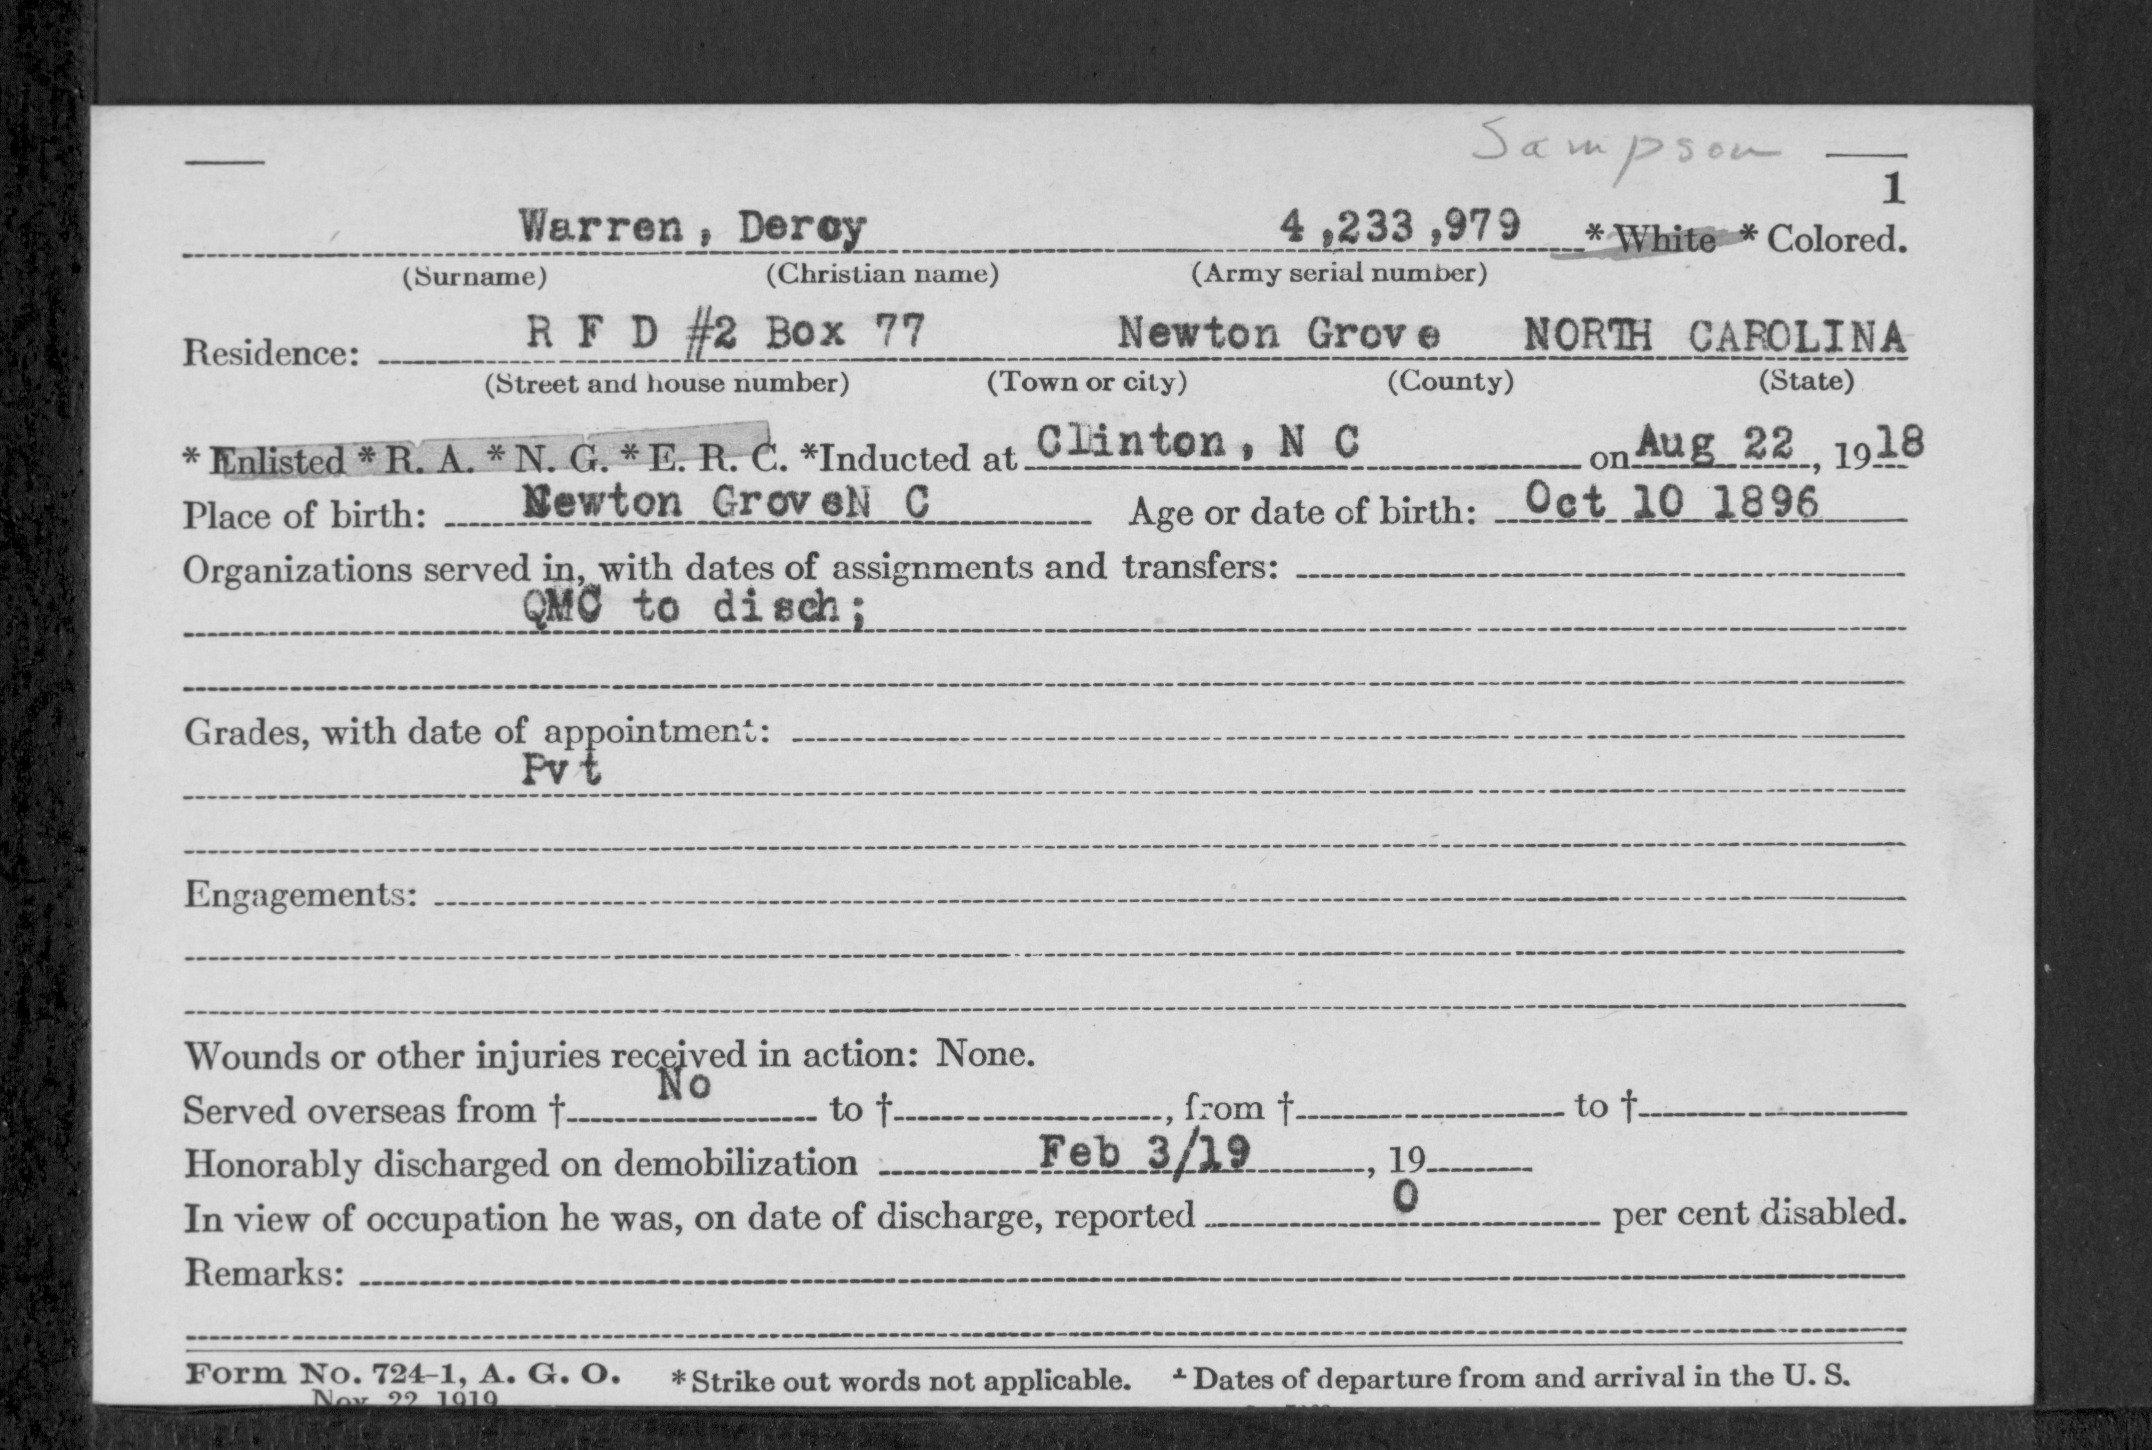 Sampson
1
Warren, Deroy 4,233,979 * White * Colored.
(Surname) (Christian name) (Army serial number)
Residence: R F D #2 Box 77 Newton Grove NORTH CAROLINA
(Street and house number) (Town or city) (County) (State)
* Enlisted * R. A. * N. G. * E. R. C. *Inducted at Clinton, N C on Aug 22, 1918
Place of birth: Newton Grove N C Age or date of birth: Oct 10 1896
Organizations served in, with dates of assignments and transfers:
QMC to disch;
Grades, with date of appointment:
Pvt
Engagements:
Wounds or other injuries received in action: None.
Served overseas from † No to †, from † to †
Honorably discharged on demobilization Feb 3/19, 19
In view of occupation he was, on date of discharge, reported 0 per cent disabled.
Remarks:
Form No. 724-1, A. G. O. * Strike out words not applicable. † Dates of departure from and arrival in the U. S.
Nov. 22, 1919